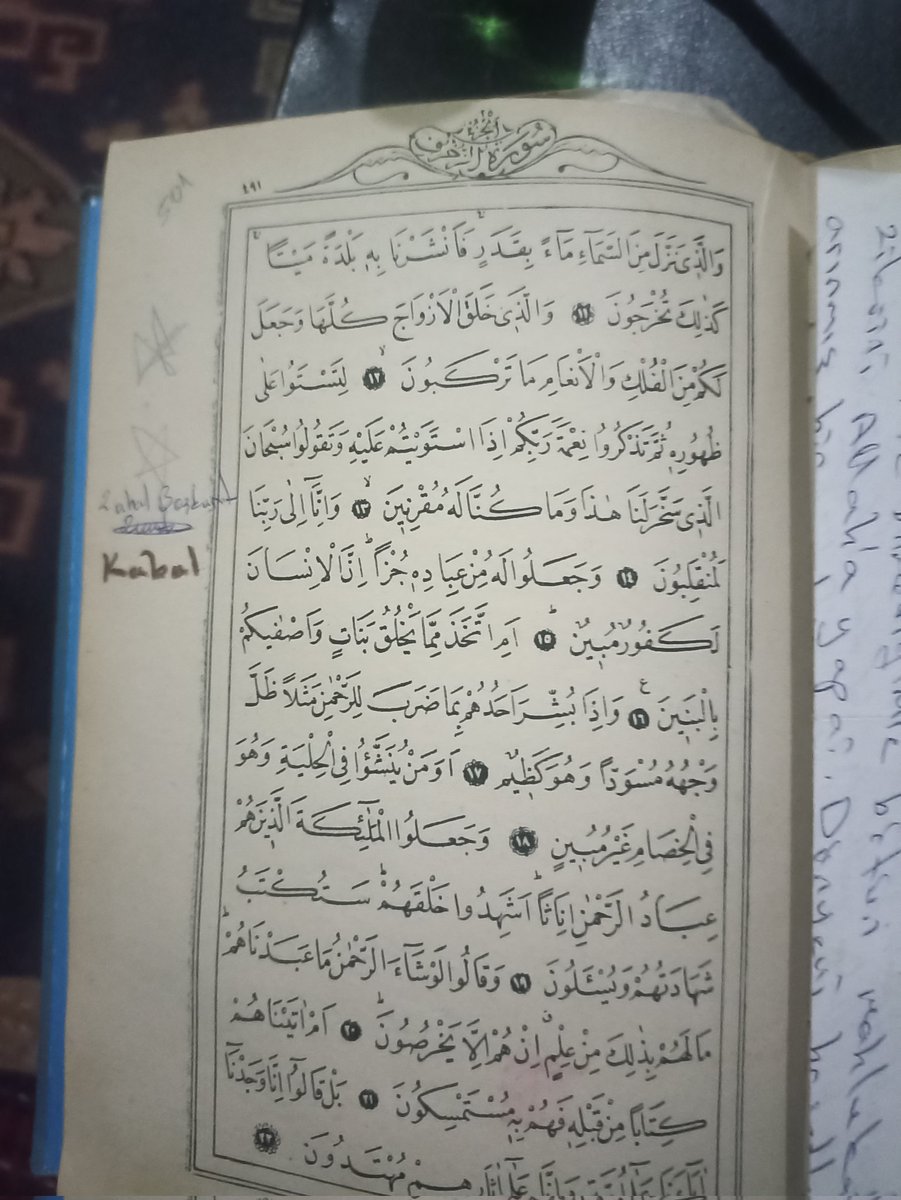 سُورَةُ الزُّخْرُفِ
٤٩١
وَالَّذٖى نَزَّلَ مِنَ السَّمَٓاءِ مَٓاءً بِقَدَرٍ فَاَنْشَرْنَا بِهٖ بَلْدَةً مَيْتًا
كَذٰلِكَ تُخْرَجُونَ ﴿١١﴾ وَالَّذٖى خَلَقَ الْاَزْوَاجَ كُلَّهَا وَجَعَلَ
لَكُمْ مِنَ الْفُلْكِ وَالْاَنْعَامِ مَا تَرْكَبُونَ ﴿١٢﴾ لِتَسْتَوُ۫ا عَلٰى
ظُهُورِهٖ ثُمَّ تَذْكُرُوا نِعْمَةَ رَبِّكُمْ اِذَا اسْتَوَيْتُمْ عَلَيْهِ وَتَقُولُوا سُبْحَانَ
الَّذٖى سَخَّرَ لَنَا هٰذَا وَمَا كُنَّا لَهُ مُقْرِنٖينَ ﴿١٣﴾ وَاِنَّٓا اِلٰى رَبِّنَا
لَمُنْقَلِبُونَ ﴿١٤﴾ وَجَعَلُوا لَهُ مِنْ عِبَادِهٖ جُزْءًا اِنَّ الْاِنْسَانَ
لَكَفُورٌ مُبٖينٌ ﴿١٥﴾ اَمِ اتَّخَذَ مِمَّا يَخْلُقُ بَنَاتٍ وَاَصْفٰيكُمْ
بِالْبَنٖينَ ﴿١٦﴾ وَاِذَا بُشِّرَ اَحَدُهُمْ بِمَا ضَرَبَ لِلرَّحْمٰنِ مَثَلًا ظَلَّ
وَجْهُهُ مُسْوَدًّا وَهُوَ كَظٖيمٌ ﴿١٧﴾ اَوَمَنْ يُنَشَّؤُا فِى الْحِلْيَةِ وَهُوَ
فِى الْخِصَامِ غَيْرُ مُبٖينٍ ﴿١٨﴾ وَجَعَلُوا الْمَلٰٓئِكَةَ الَّذٖينَ هُمْ
عِبَادُ الرَّحْمٰنِ اِنَاثًا اَشَهِدُوا خَلْقَهُمْ سَتُكْتَبُ
شَهَادَتُهُمْ وَيُسْـَٔلُونَ ﴿١٩﴾ وَقَالُوا لَوْ شَٓاءَ الرَّحْمٰنُ مَا عَبَدْنَاهُمْ
مَا لَهُمْ بِذٰلِكَ مِنْ عِلْمٍ اِنْ هُمْ اِلَّا يَخْرُصُونَ ﴿٢٠﴾ اَمْ اٰتَيْنَاهُمْ
كِتَابًا مِنْ قَبْلِهٖ فَهُمْ بِهٖ مُسْتَمْسِكُونَ ﴿٢١﴾ بَلْ قَالُٓوا اِنَّا وَجَدْنَٓا
اٰبَٓاءَنَا عَلٰٓى اُمَّةٍ وَاِنَّا عَلٰٓى اٰثَارِهِمْ مُهْتَدُونَ ﴿٢٢﴾
501
Kabal
Allaha